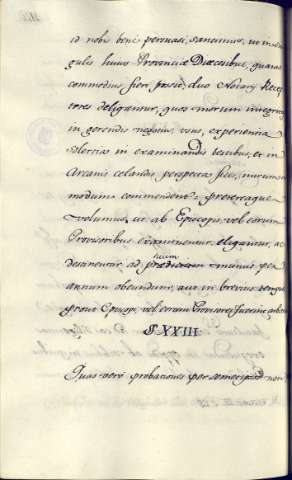 id nobis bene persuasi, sancimus, ut in sin
gulis huius Provinciæ Dioecesibus, quoad
commodius fieri possit, duo Notarij Recep
tores deligantur, quos morum integritas
in gerendis negotijs usus, experientia
solertia in examinandis testibus, et in
Arcanis celandis perspecta fides, in primis
modum commendent: præterea que
Volumus, ut ab Episcopis, vel eorum
Provisoribus examinentur, eligantur, ac
destinentur ad munus per
annum obeundum, aut in brevius tempus
prout Episcopi, vel eorum Provisores
§. XXIII.
Quas vero probationes per semetipsos non